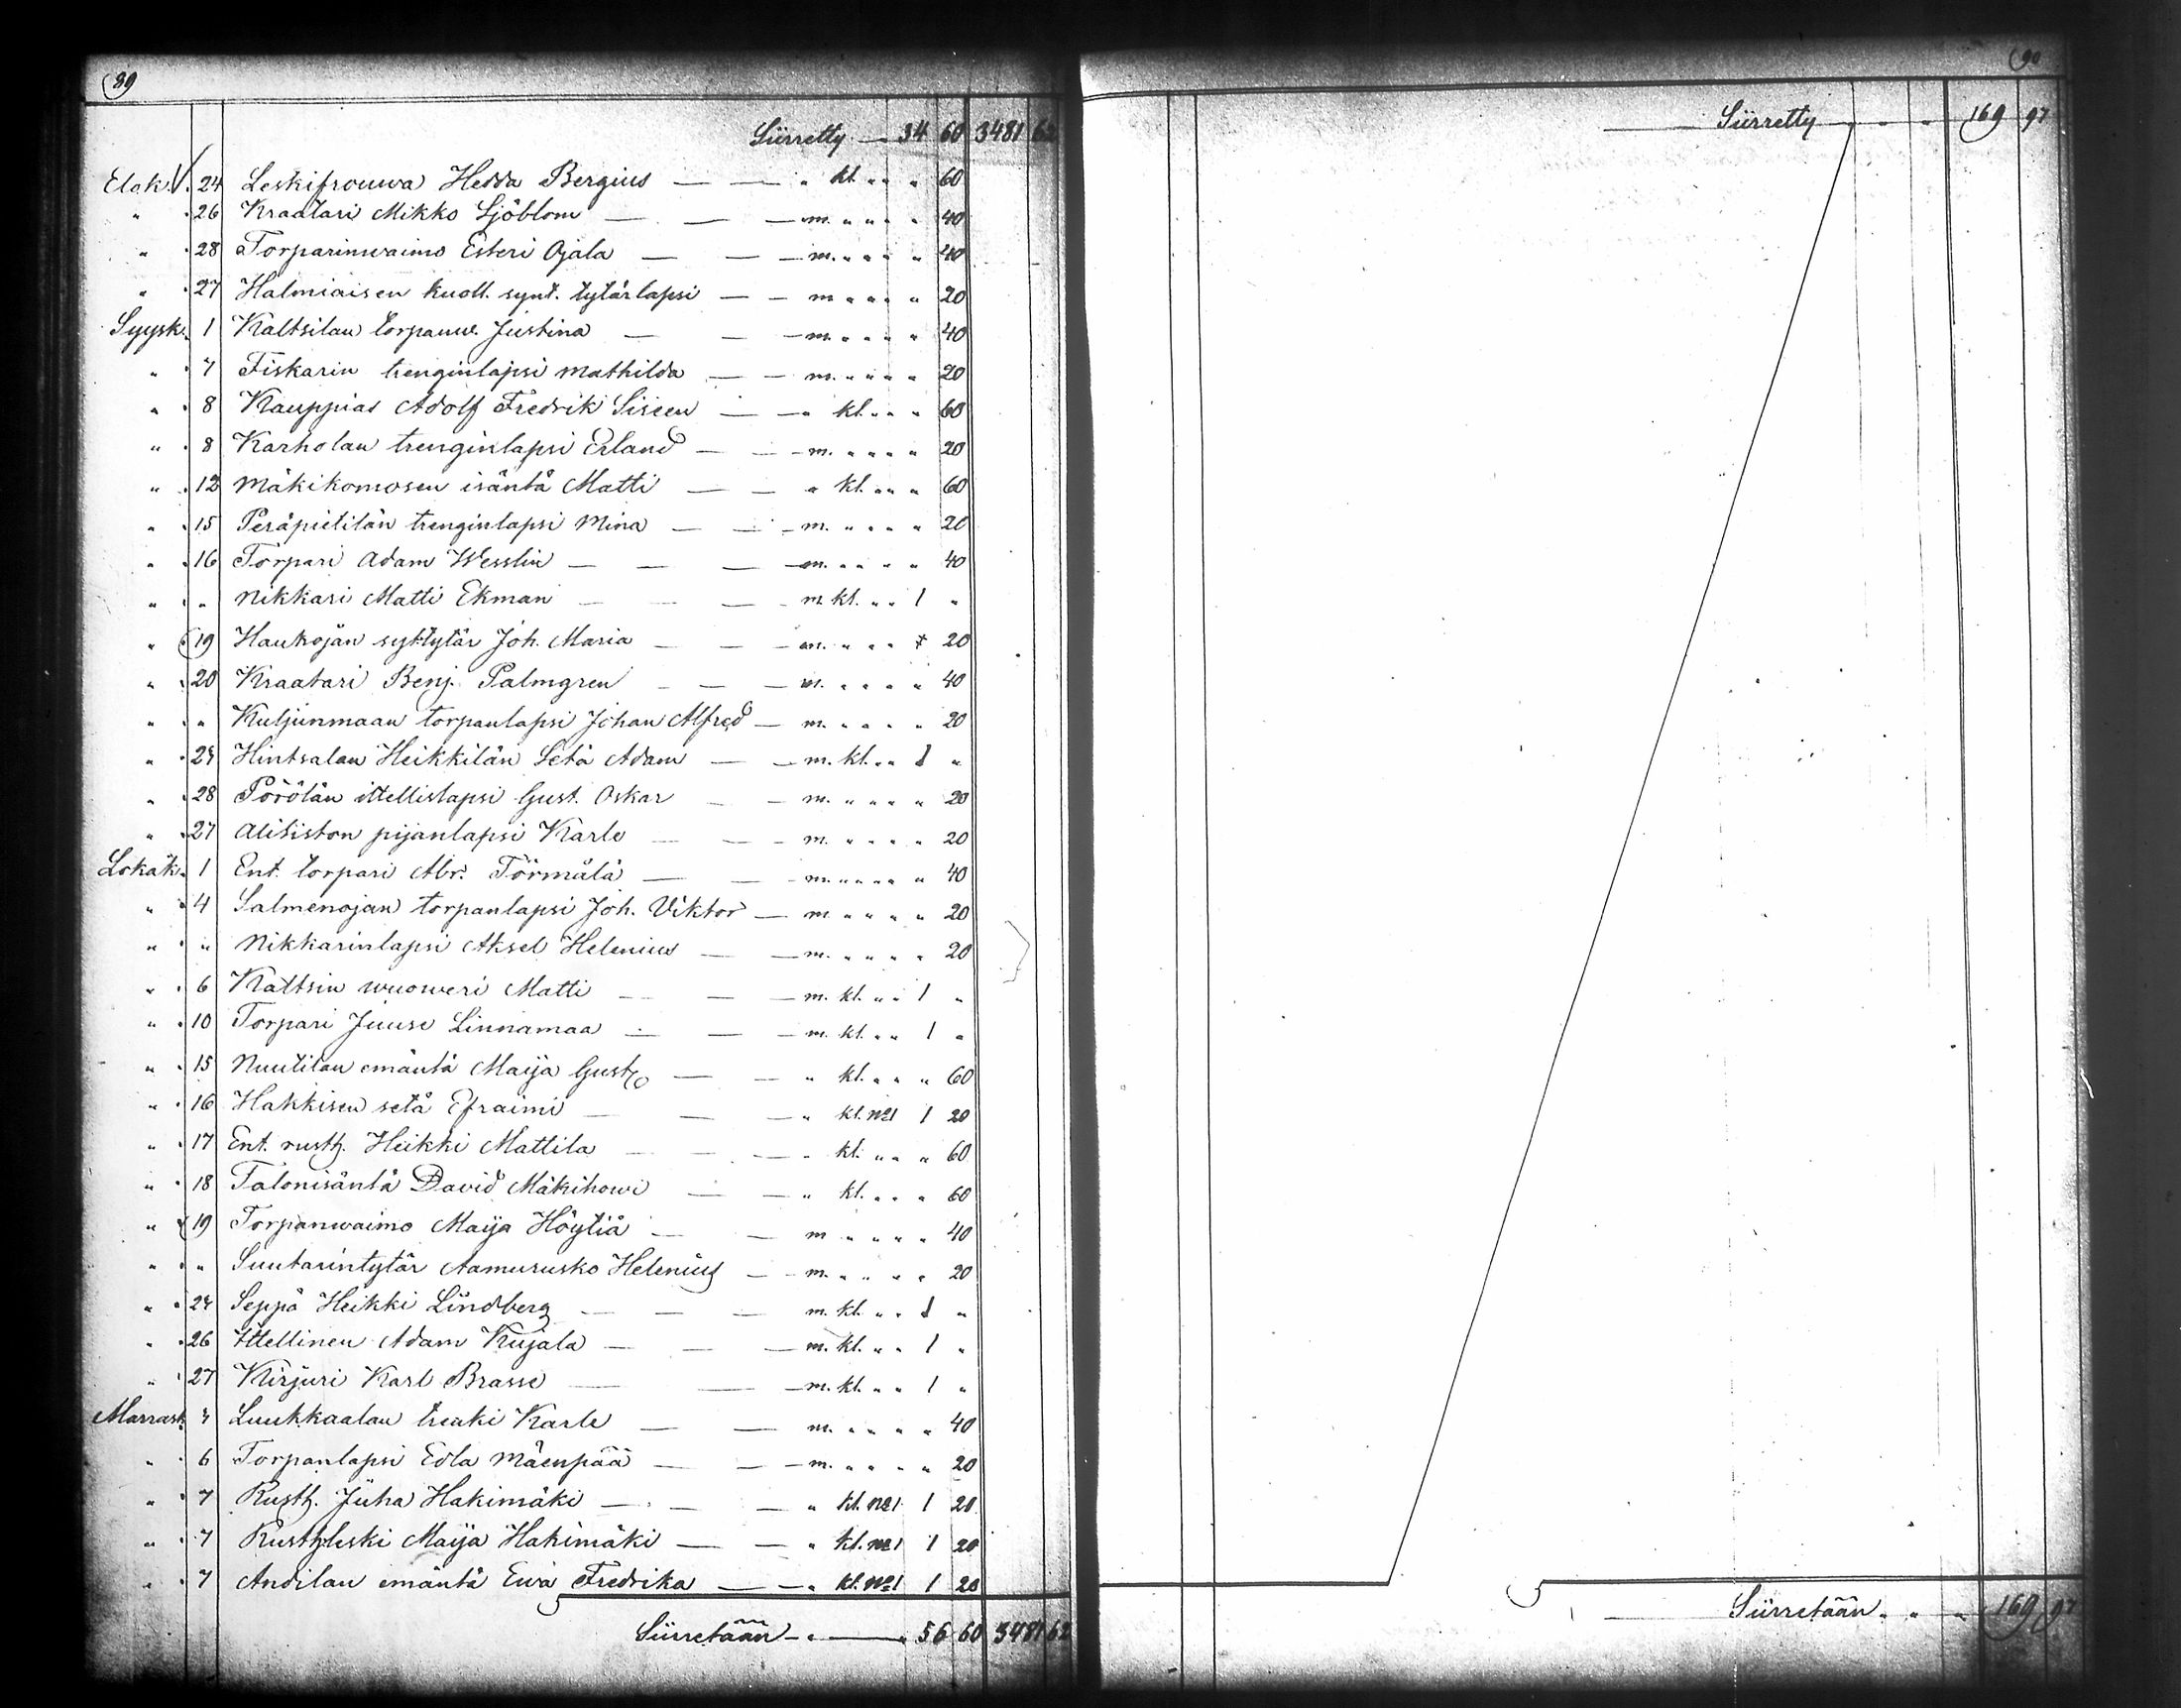 89
Siirretty — 34 60 3481 62
Elok. 24 Leskifrouwa Hedda Bergius — — " kl. " " " 60
" 26 Kraatari Mikko Sjöblom — — — m. " " " " 40
" 28 Torparinwaimo Esteri Ojala — — — m. " " " " 40
" 27 Halmiaisen kuoll. synt. tytärlapsi — — m " " " " 20
Syysk. 1 Kaltsilan torpanw. Justina — — — m. " " " " 40
" 7 Fiskarin trenginlapsi Mathilda — — m. " " " " 20
" 8 Kauppias Adolf Fredrik Siseen — — " kl. " " " 60
" 8 Karholan trenginlapsi Erland — — m. " " " " 20
" 12 Mäkikomosen isäntä Matti — — " kl. " " " 60
" 15 Peräpietilän trenginlapsi Mina — — m. " " " " 20
" 16 Torpari Adam Wesslin — — — m. " " " " 40
" " Nikkari Matti Ekman — — — m. kl. " " 1 "
" 19 Haukojan sytytär Joh. Maria — — m. " " " 20
" 20 Kraatari Benj. Palmgren — — — m. " " " " 40
" " Kuljunmaan torpanlapsi Johan Alfred — m. " " " " 20
" 24 Hintsalan Heikkilän Setä Adam — — m. kl. " " 1 "
" 28 Pörölän ittellislapsi Gust. Oskar — — m. " " " " 20
" 27 Alisiston pijanlapsi Karle — — — m. " " " " 20
Lokak. 1 Ent. torpari Abr. Törmälä — — m. " " " " 40
" 4 Salmenojan torpanlapsi Joh. Viktor — m " " " " 20
" " Nikkarinlapsi Aksel Helenius — — m. " " " " 20
" 6 Kaltsin wuoweri Matti — — — m. kl. " " 1 "
" 10 Torpari Juuse Linnamaa — — — m. kl. " " 1 "
" 15 Nuutilan emäntä Maija Gust. — — " kl. " " " 60
" 16 Hakkisen setä Efraimi — — — " kl. No1 1 20
" 17 Ent. rusth. Heikki Mattila — — — " kl. " " " 60
" 18 Talonisäntä David Mäkihowi — — " kl. " " " 60
" 19 Torpanwaimo Maija Höytiä — — m " " " " 40
" " Suutarintytär Aamurusko Helenius — m. " " " " 20
" 24 Seppä Heikki Lindberg — — — m. kl. " " 1 "
" 26 Ittellinen Adam Kujala — — — m. kl. " " 1 "
" 27 Kirjuri Karl Brasse — — m. kl. " " 1 "
Marrask. 4 Luukkaalan trenki Karle — — m. " " " " 40
" 6 Torpanlapsi Edla Mäenpää — — m. " " " " 20
" 7 Rusth. Juha Hakimäki — — — " kl. No1 1 20
" 7 Rusthleski Maija Hakimäki — — " kl. No1 1 20
" 7 Andilan emäntä Ewa Fredrika — — " kl. No1 1 20
Siirretään — " — " 56 60 3481 62
90
Siirretty " " " 169 97
Siirretään " " — 169 97